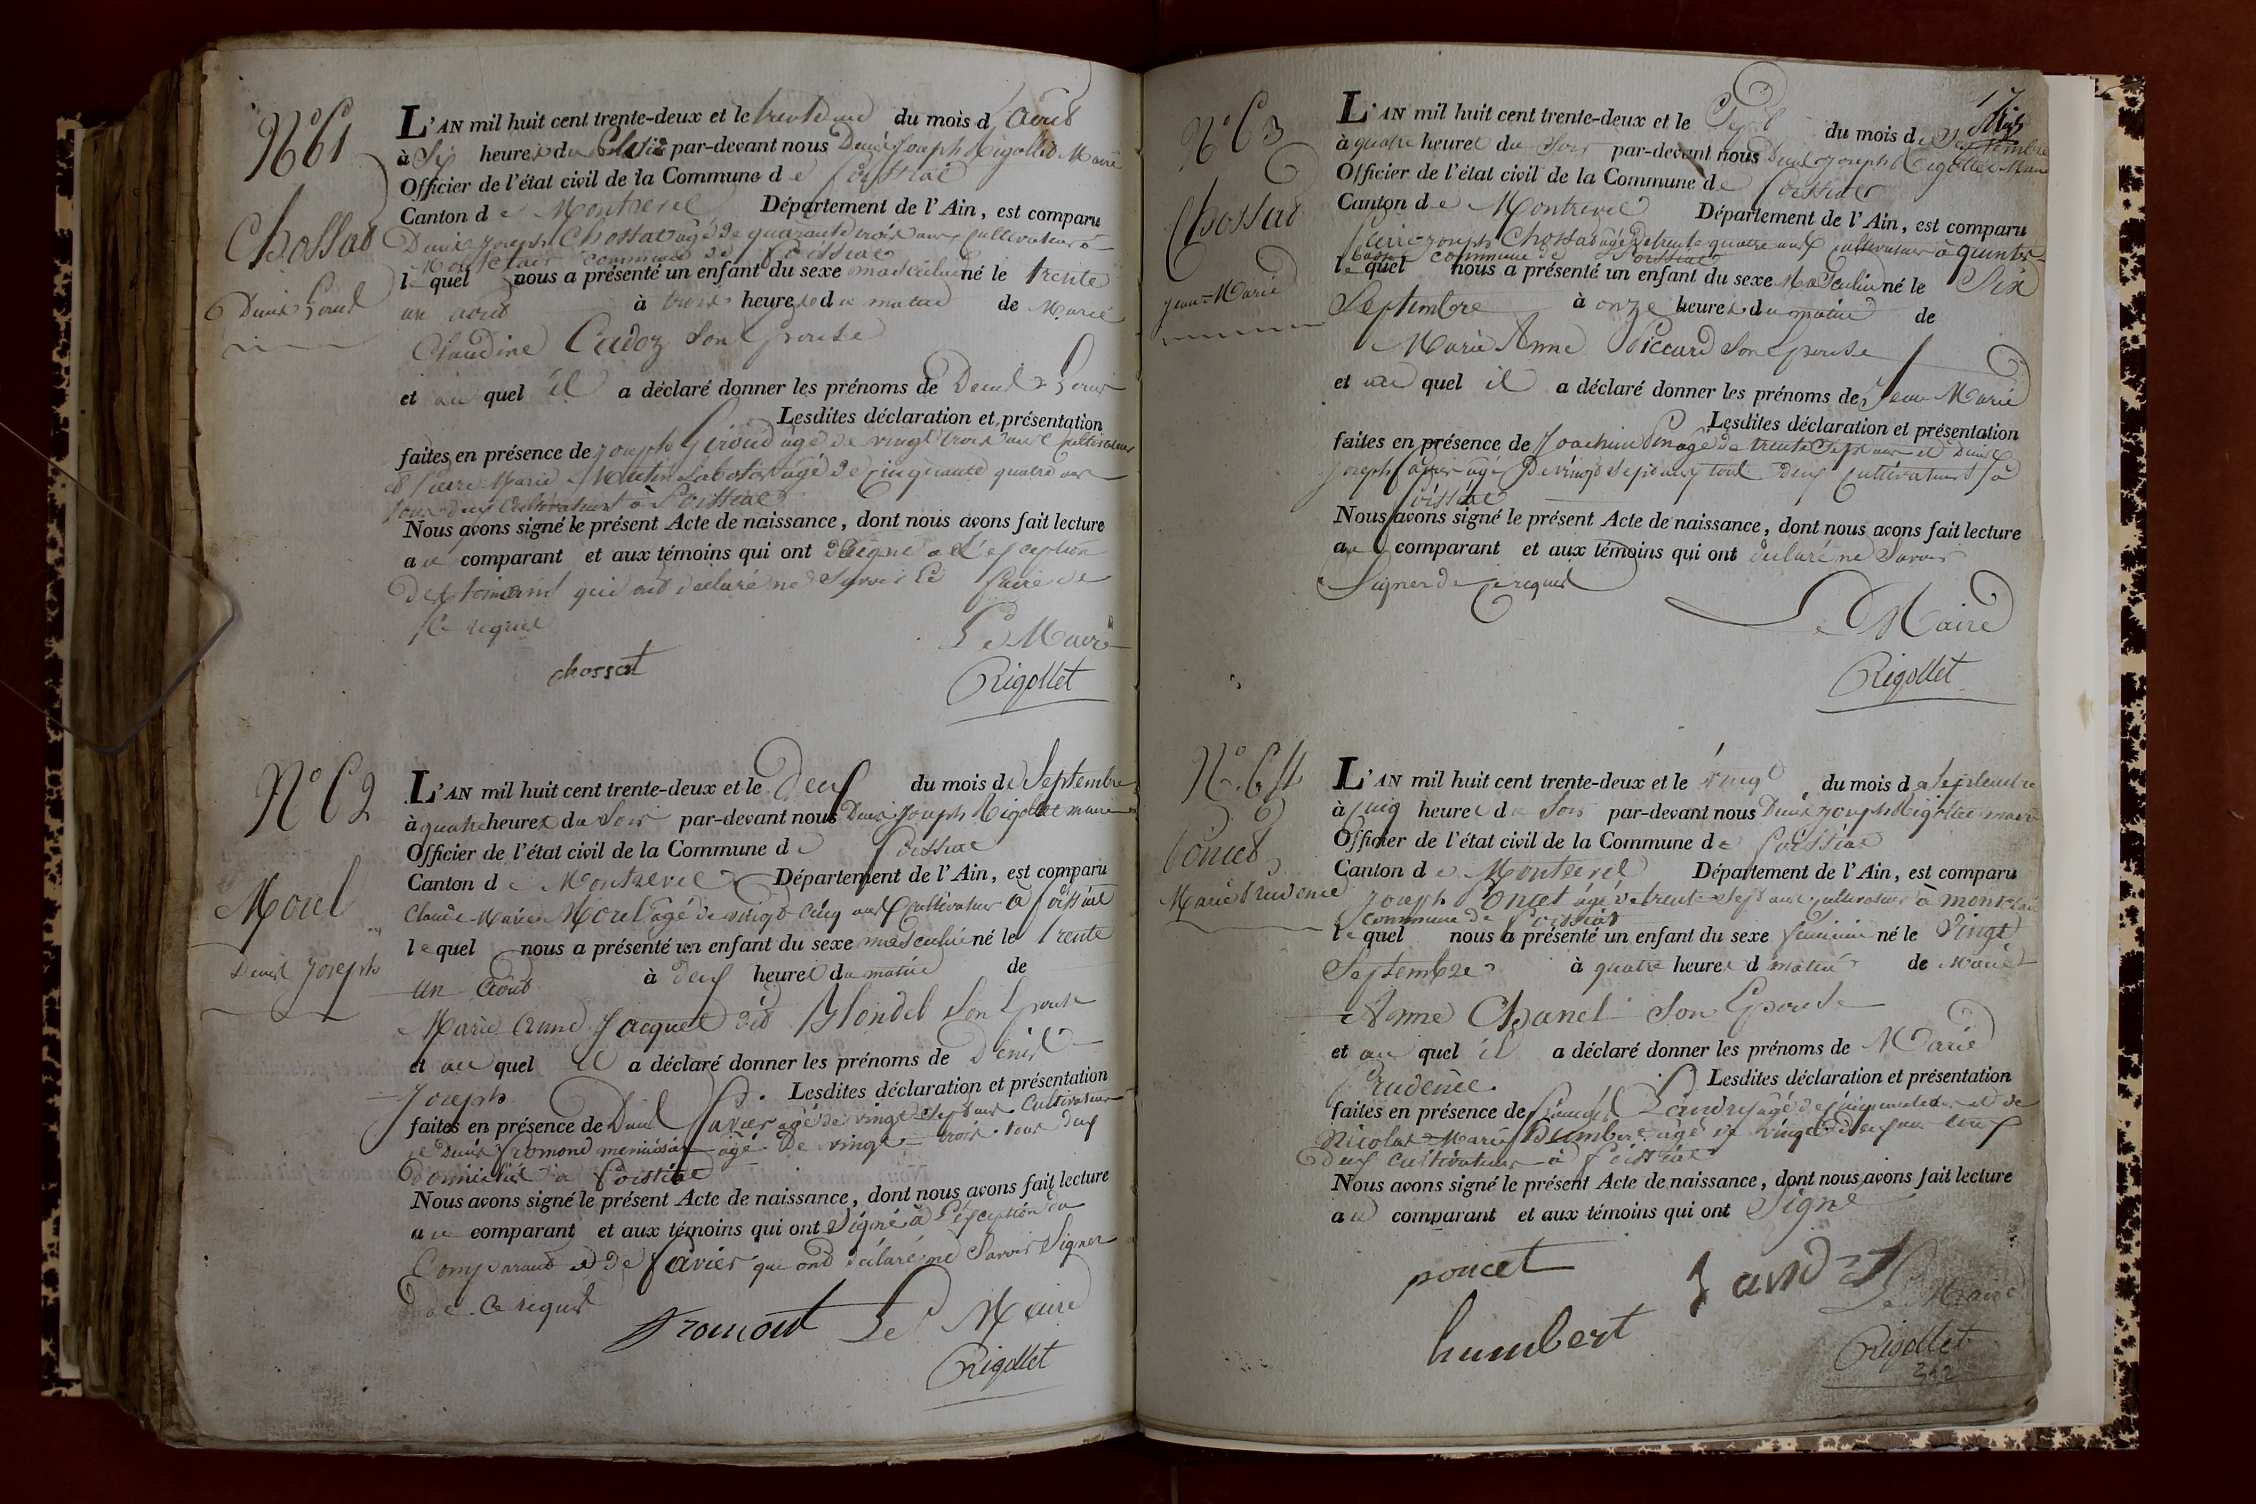 N° 61
Chossat
Denis Louis
L'AN mil huit cent trente-deux et le trente un du mois d'août
à Six heures du par-devant nous Denis Joseph Rigollet Maire
Officier de l'état civil de la Commune de Foissiat
Canton de Montrevel Département de l'Ain, est comparu
Denis Joseph Chossat âgé de quarante trois ans Cultivateur à
Montclair commune de Foissiat
lequel nous a présenté un enfant du sexe masculin né le trente
un août à trois heures du matin de Marie
Claudine Cadoz Son Epouse
et au quel il a déclaré donner les prénoms de Denis Louis
Lesdites déclaration et présentation
faites en présence de Joseph Giroud âgé de vingt trois ans Cultivateur
et Pierre Marie âgé de Cinquante quatre ans
tous deux Cultivateurs à Foissiat
Nous avons signé le présent Acte de naissance, dont nous avons fait lecture
au comparant et aux témoins qui ont Signé a L'exception
des témoins qui ont déclaré ne Savoir Le faire de
Ce requis
Le Maire
chossat
Rigollet
N° 62
Morel
Denis Joseph
L'AN mil huit cent trente-deux et le Deux du mois de Septembre
à quatre heures du Soir par-devant nous Denis Joseph Rigollet maire
Officier de l'état civil de la Commune de Foissiat
Canton de Montrevel Département de l'Ain, est comparu
Claude-Marie Morel âgé de vingt-Cinq ans Cultivateur à Foissiat
lequel nous a présenté un enfant du sexe masculin né le trente
un Août à deux heures du matin de
Marie Anne Jacquet dit Blondel Son Epouse
et au quel il a déclaré donner les prénoms de Denis
Joseph Lesdites déclaration et présentation
faites en présence de Denis Favier âgé de vingt Sept ans Cultivateur
et Denis Fromond menuisier âgé De vingt-trois tous deux
Domiciliés à Foissiat
Nous avons signé le présent Acte de naissance, dont nous avons fait lecture
au comparant et aux témoins qui ont Signé à L'exception du
Comparant et de Favier qui ont déclaré ne Savoir Signer
de Ce requis
fromont Le Maire
Rigollet
N° 63
Chossat
Jean-Marie
L'AN mil huit cent trente-deux et le Sept du mois de Septembre
à quatre heures du Soir par-devant nous Denis Joseph Rigollet Maire
Officier de l'état civil de la Commune de Foissiat
Canton de Montrevel Département de l'Ain, est comparu
Pierre Joseph Chossat âgé de trente quatre ans Cultivateur à
commune de Foissiat
lequel nous a présenté un enfant du sexe Masculin né le Six
Septembre à onze heures du matin de
Marie Anne Piccard Son Epouse
et au quel il a déclaré donner les prénoms de Jean Marie
Lesdites déclaration et présentation
faites en présence de Joachim âgé de trente Sept ans et Denis
Joseph âgé De vingt Sept ans tout deux Cultivateurs à
Foissiat
Nous avons signé le présent Acte de naissance, dont nous avons fait lecture
au comparant et aux témoins qui ont déclaré ne Savoir
Signer de Ce requis
Le Maire
Rigollet
N° 64
Poncet
Marie Prudence
L'AN mil huit cent trente-deux et le vingt du mois de Septembre
à Cinq heures du Soir par-devant nous Denis Joseph Rigollet maire
Officier de l'état civil de la Commune de Foissiat
Canton de Montrevel Département de l'Ain, est comparu
Joseph Poncet âgé de trente-Sept ans Cultivateur à montclair
Commune de Foissiat
lequel nous a présenté un enfant du sexe féminin né le Vingt
Septembre à quatre heures d matin de Marie
Anne Chanel Son Epouse
et au quel il a déclaré donner les prénoms de Marie
Prudence Lesdites déclaration et présentation
faites en présence de Landry âgé de et de
Nicolas-Marie Humbert âgé de vingt-deux ans tous
Deux Cultivateurs à Foissiat
Nous avons signé le présent Acte de naissance, dont nous avons fait lecture
au comparant et aux témoins qui ont Signé
poncet
Le Maire
humbert
Rigollet